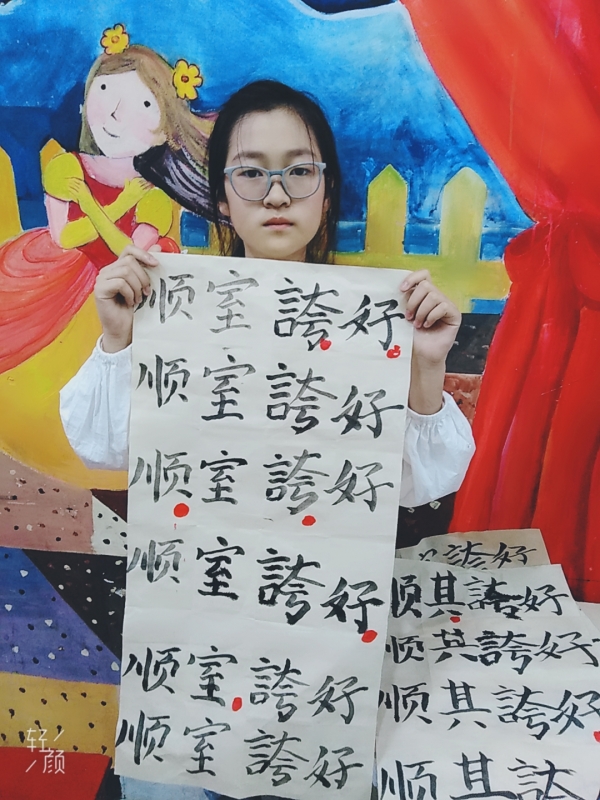 顺室誇好
顺室誇好
顺室誇好
顺室誇好
顺室誇好
顺室誇好
誇好
顺其誇好
顺其誇好
顺其誇好
顺其誇
轻颜